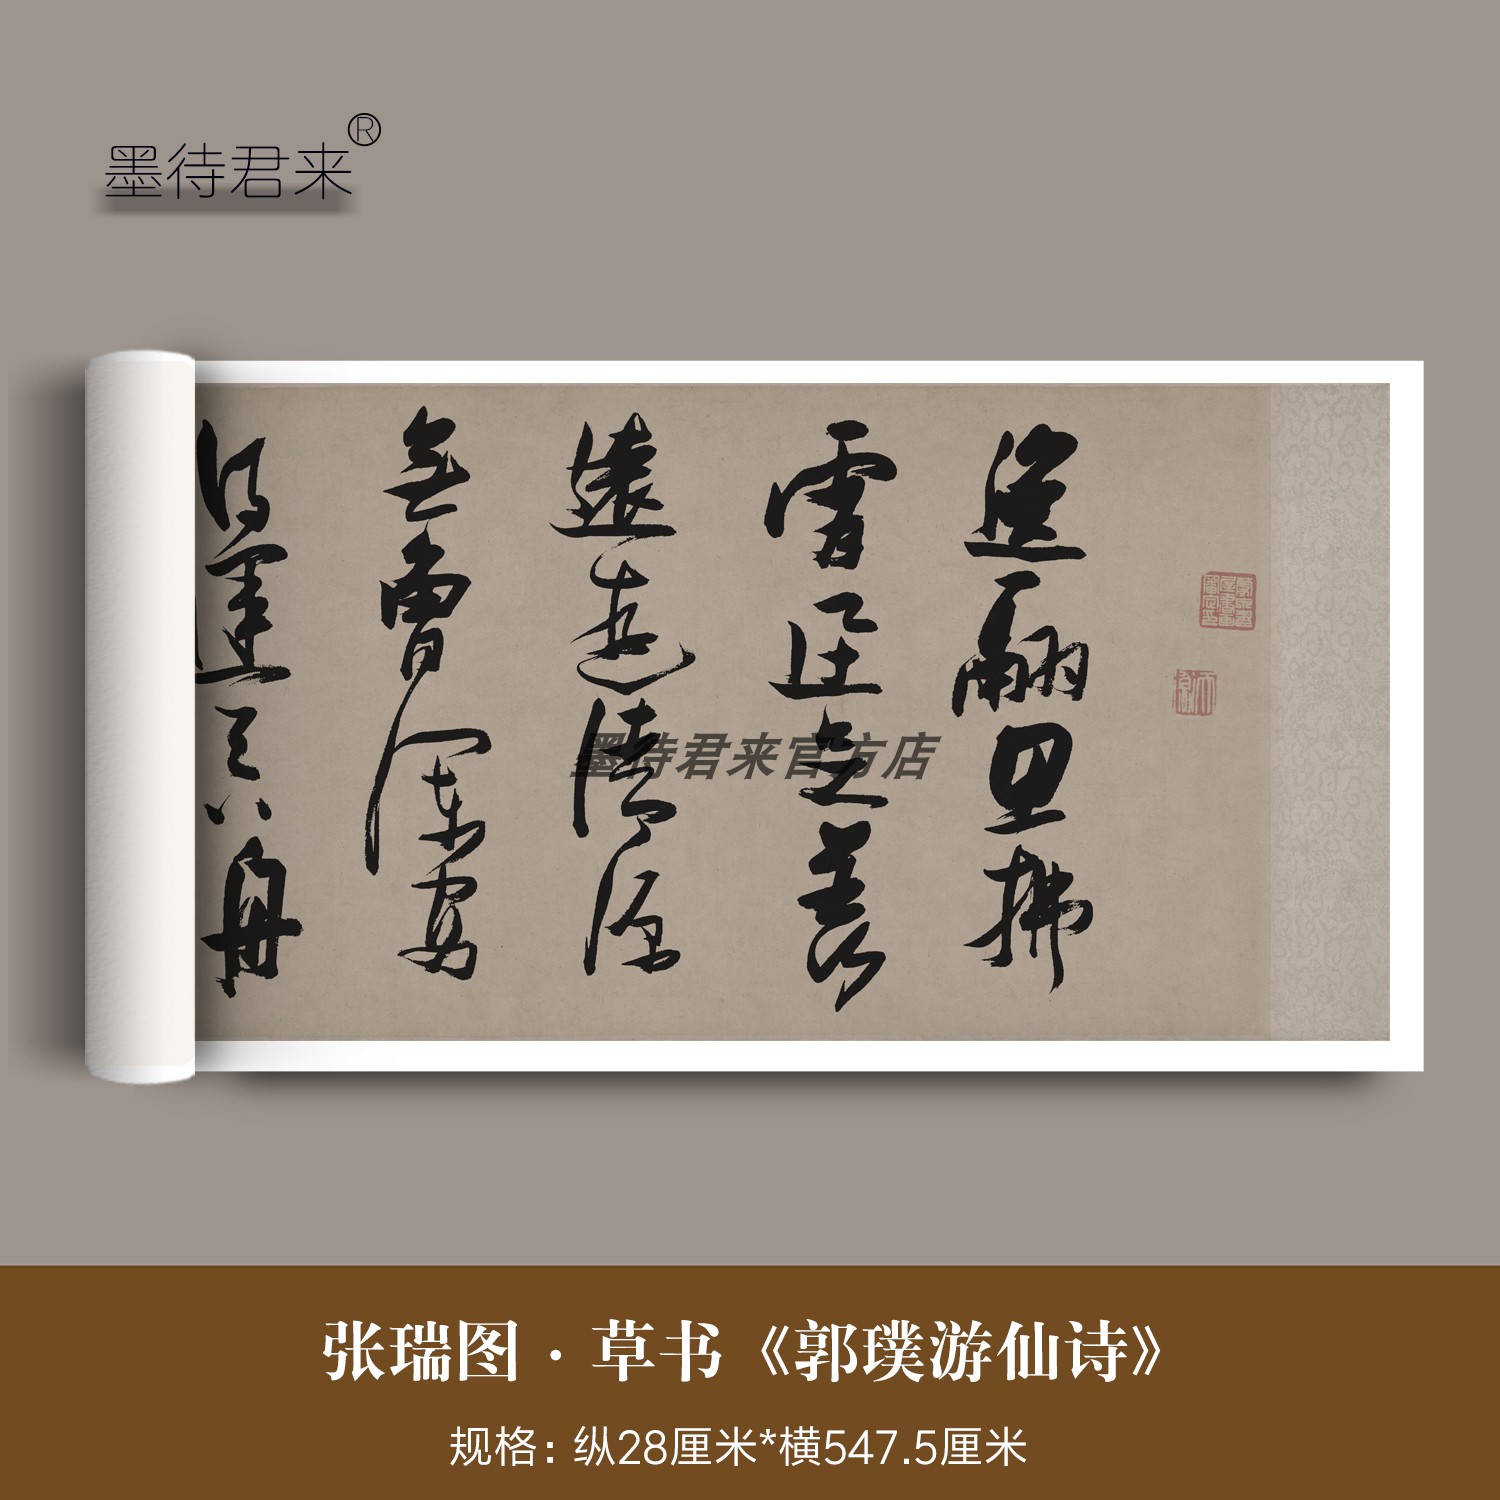 墨待君来®
逸翮思拂
霄迅足羨
遠遊清源
無曾瀾安
得運吞舟
墨待君来官方店
张瑞图·草书《郭璞游仙诗》
规格：纵28厘米*横547.5厘米